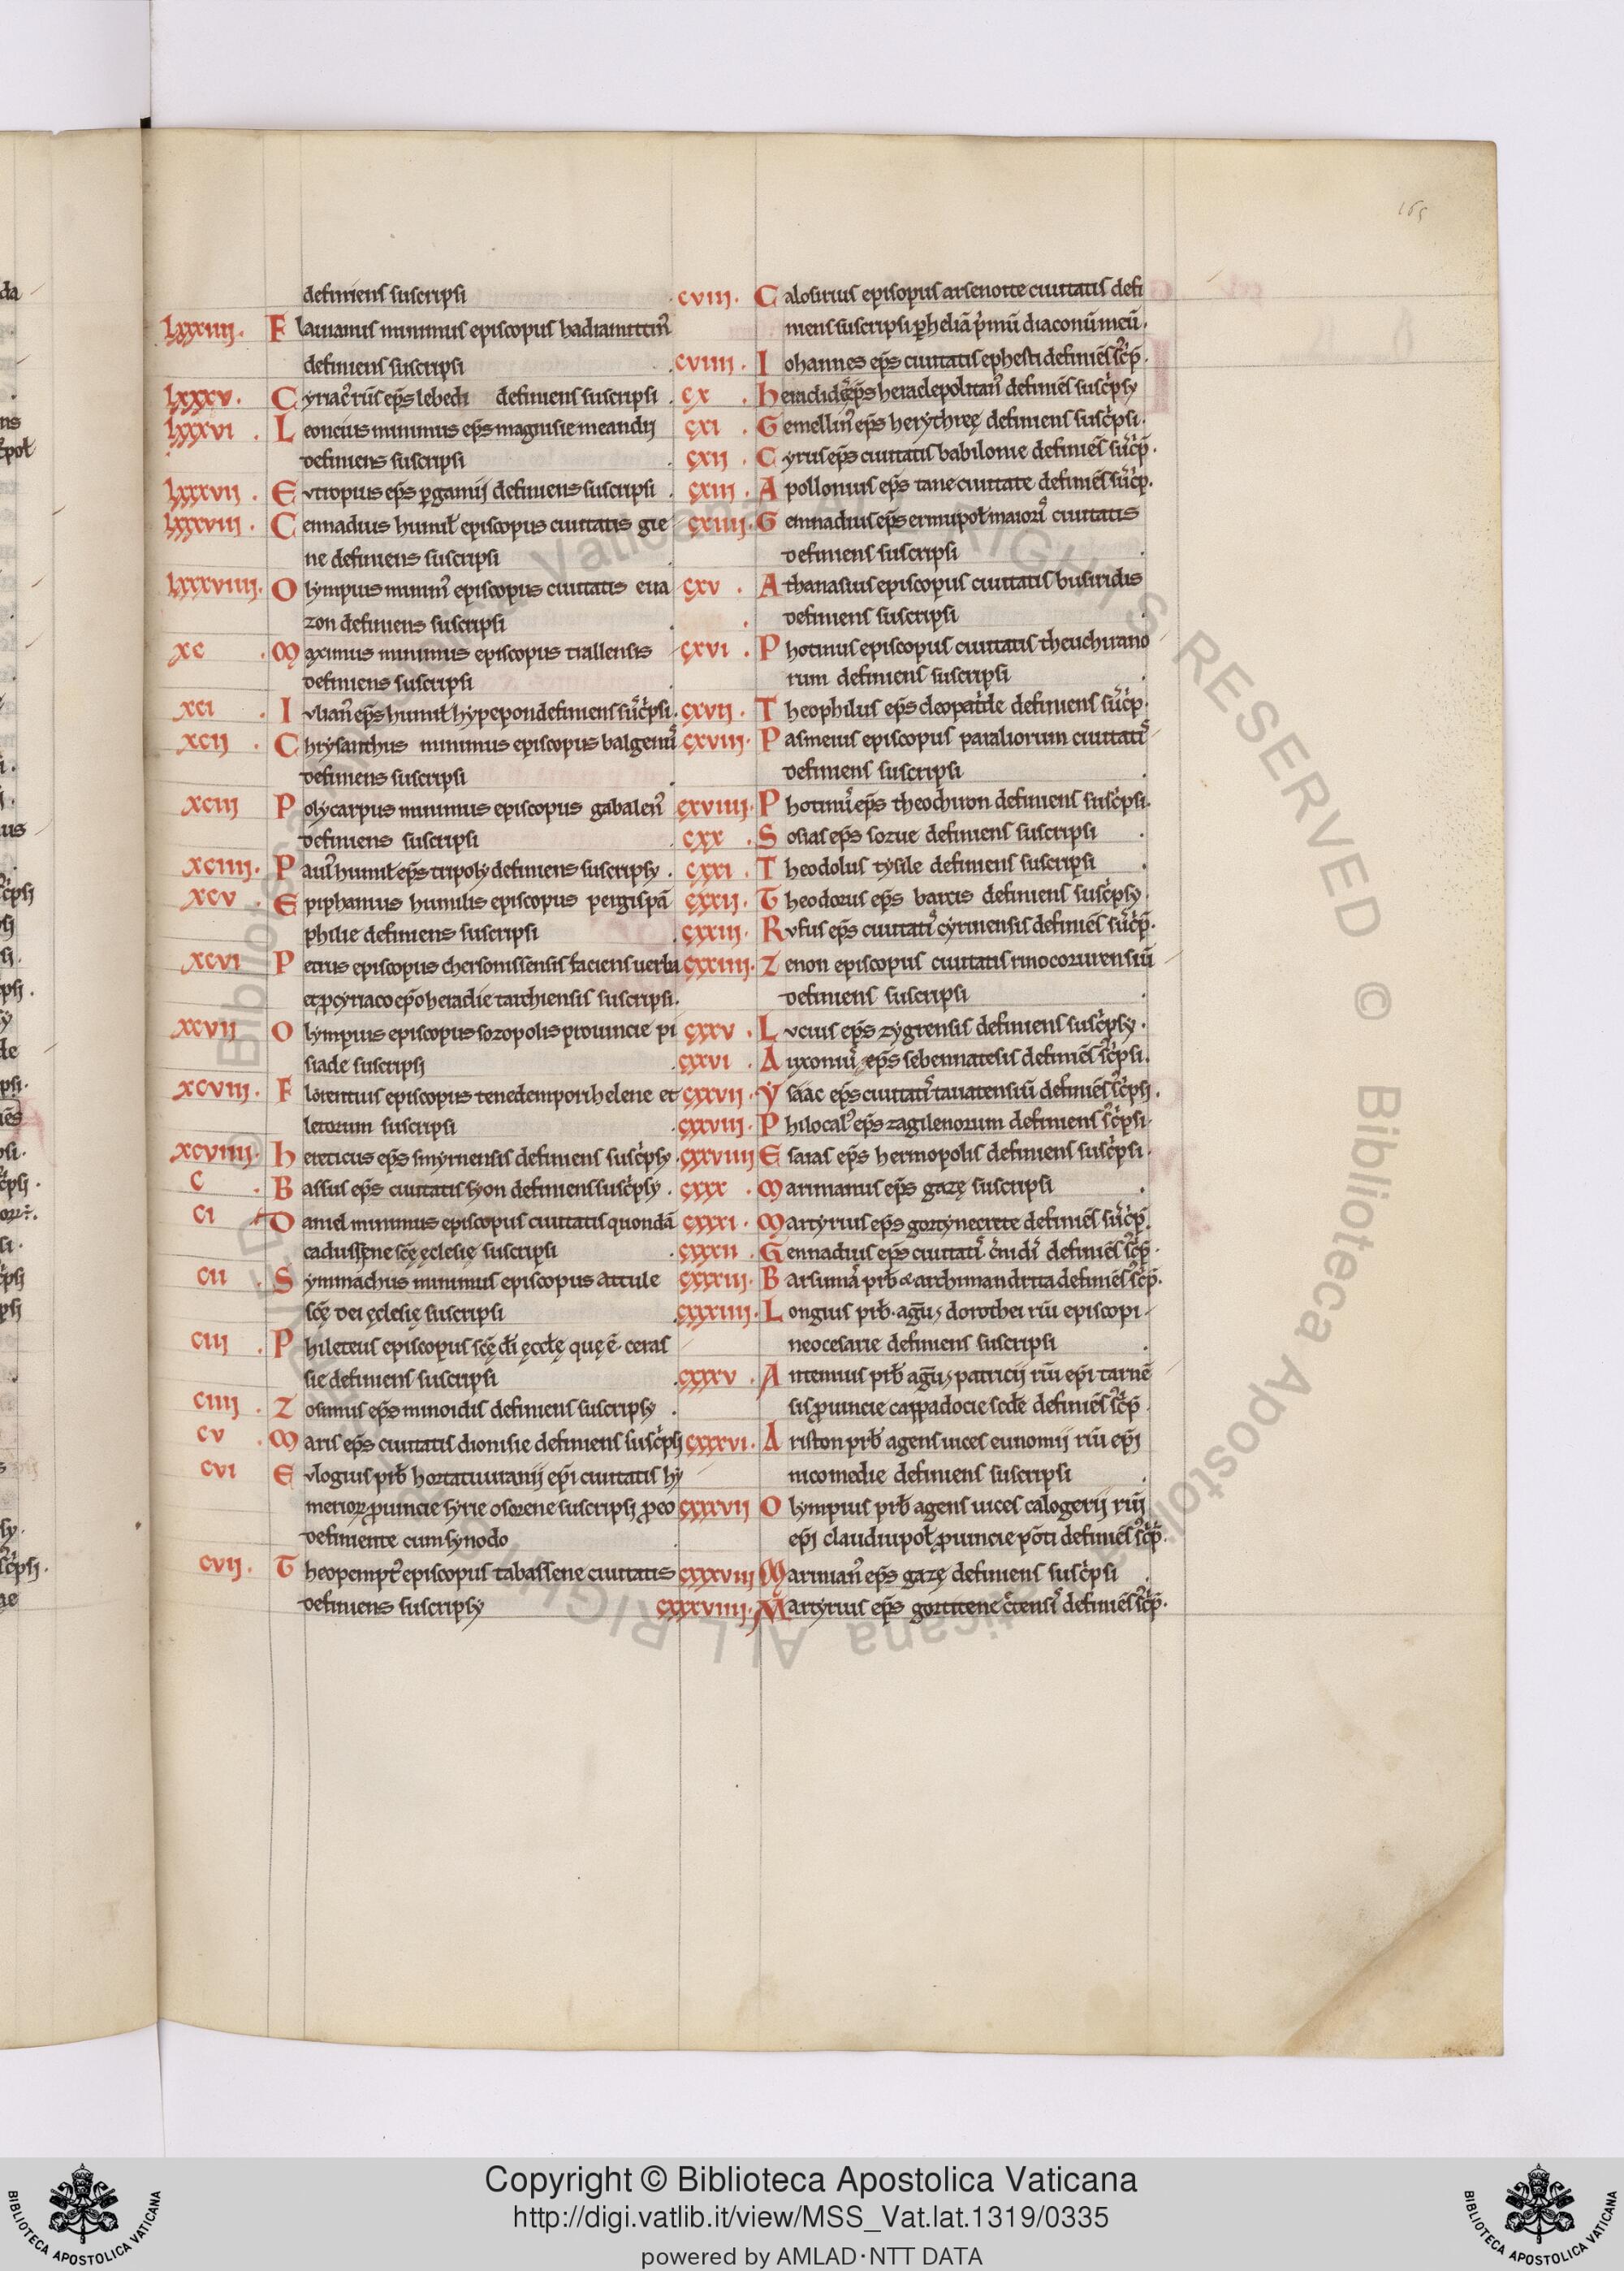 165
definiens suscripsi
lxxxiiii. Flauianus minimus episcopus hadramittin̄
definiens suscripsi
lxxxv. Cyriac᷒ rūs ep̄s lebedi definiens suscripsi
lxxxvi. Leoncius minimus ep̄s magnisie meandrj
definiens suscripsi
lxxxvii. Evtropius ep̄s ꝑgamij definiens suscripsi
lxxxviii. Cennadius humil̄ episcopus ciuitatis gie
ne definiens suscripsi
lxxxviiii. Olympius minim᷒ episcopus ciuitatis eua
zon definiens suscripsi
xc. Maximus minimus episcopus trallensis
definiens suscripsi
xci. Iulian᷒ ep̄s humil̄ hypepon definiens sūscͥpsi.
xcii. Chrysanthus minimus episcopus balgenū
definiens suscripsi
xciij Polycarpus minimus episcopus gabalen᷒
definiens suscripsi
xciiij. Paul᷒ humil̄ ep̄s tripoly definiens suscripsy.
xcv. Epiphanius humilis episcopus pergis pā
philie definiens suscripsi
xcvi Petrus episcopus chersonissensis faciens uerba
et ꝓ cyriaco ep̄o heradie tarchiensis suscripsi.
xxvij Olympius episcopus sozopolis prouincie pi
siade suscripsj
xcviij. Florentius episcopus tenedemporihelene et
letorum suscripsi
xcviiij. Hereticus ep̄s smyrnensis definiens suscͥpsy.
c. Bassus ep̄s ciuitatis syon definiens suscͥpsy.
ci Daniel minimus episcopus ciuitatis quondā
cadussene scę̄ ęclesię suscripsi
cii. Symmachus minimus episcopus attule
scę̄ dei ęclesię suscripsi
ciij Phileteus episcopus scę̄ dī ęccl̄ę quę ē ceras
sie definiens suscripsi
ciiij. Zosimus ep̄s minoidis definiens suscripsy.
cv. Maris ep̄s ciuitatis dionisie definiens suscͥpsj
cvi Evlogius prb̄ hortatu uranij ep̄i ciuitatis hy
meriorꝝ ꝓuincie syrie osorene suscripsj ꝓ eo
definiente cum synodo
cvij. Theopempt᷒ episcopus tabassene ciuitatis
definiens suscripsy
cviij. Calosirius episopus arsenoite ciuitatis defi
niens suscripsi ꝑ heliā pͥmū diaconū meū.
cviiij. Iohannes ep̄s ciuitatis ephesti definiēs scͥp̄.
cx. Heraclid᷒ ep̄s heraclepolitan᷒ definiēs suscͥpsy
cxi. Gemellin᷒ ep̄s herythreę definiens suscͥpsi.
cxij. Cyrus ep̄s ciuitatis babilonie definiēs sūscͥp̄.
cxiij. Apollonius ep̄s tane ciuitate definiēs sūscͥp̄.
cxiiij. Gennadius ep̄s ermupol̄ maiorꝭ ciuitatis
definiens suscripsi
cxv. Athanasius episcopus ciuitatis busiridis
definiens suscripsi
cxvi. Photinus episcopus ciuitatis theuchirano
rum definiens suscripsi
cxvij. Theophilus ep̄s cleopatͥde definiens sūscͥp.
cxviij. Pasmeius episcopus paraliorum ciuitatꝭ
definiens suscripsi
cxviiij. Photinu᷒ ep̄s theochiron definiens suscͥpsi.
cxx. Sosias ep̄s sozue definiens suscripsi
cxxi. Theodolus tysile definiens suscripsi
cxxij. Theodorus ep̄s barcis definiens suscͥpsy.
cxxiij. Rvfus ep̄s ciuitatꝭ cyrinensis definiēs sūscͥp̄.
cxxiiij. Zenon episcopus ciuitatis rinocorurensiū
definiens suscripsi
cxxv. Lvcius ep̄s zygrensis definiens suscͥpsy.
cxxvi. Auxoniu᷒ ep̄s sebennatesis definiēs scͥpsi.
cxxvij. Ysaac ep̄s ciuitatꝭ tauatensiū definiēs scͥpsj.
cxxviij. Philocal᷒ ep̄s zagilenorum definiens scͥpsi.
cxxviiij Esaias ep̄s hermopolis definiens suscͥpsi.
cxxx. Marinianus ep̄s gazę suscripsi
cxxxi. Martyrius ep̄s gortynecrete definiēs sūscͥp̄.
cxxxii. Gennadius ep̄s ciuitatꝭ cͥnidꝭ definiēs scͥp̄.
cxxxiij. Barsuma᷒ prb̄ & archimandrita definiēs scͥp̄.
cxxxiiij. Longius prb̄. agn̄s dorothei riū episcopi
neocesarie definiens suscripsi
cxxxv. Antemius prb̄ agn̄s patricij riū ep̄i tarnē
sis ꝓuincie cappadocie scd̄e definiēs scͥp̄.
cxxxvi. Ariston prb̄ agens uices eunomij riū ep̄j
nicomedie definiens suscripsi
cxxxvij Olympius prb̄ agens uices calogerij riūj
ep̄j claudiupol̄ ꝓuincie pōti definiēs scͥp̄.
cxxxviij Marinian᷒ ep̄s gazę definiens suscͥpsi
cxxxviiij. Martyrius ep̄s gortitene cͥtensꝭ definiēs scͥp̄.
Copyright © Biblioteca Apostolica Vaticana
http://digi.vatlib.it/view/MSS_Vat.lat.1319/0335
powered by AMLAD·NTT DATA